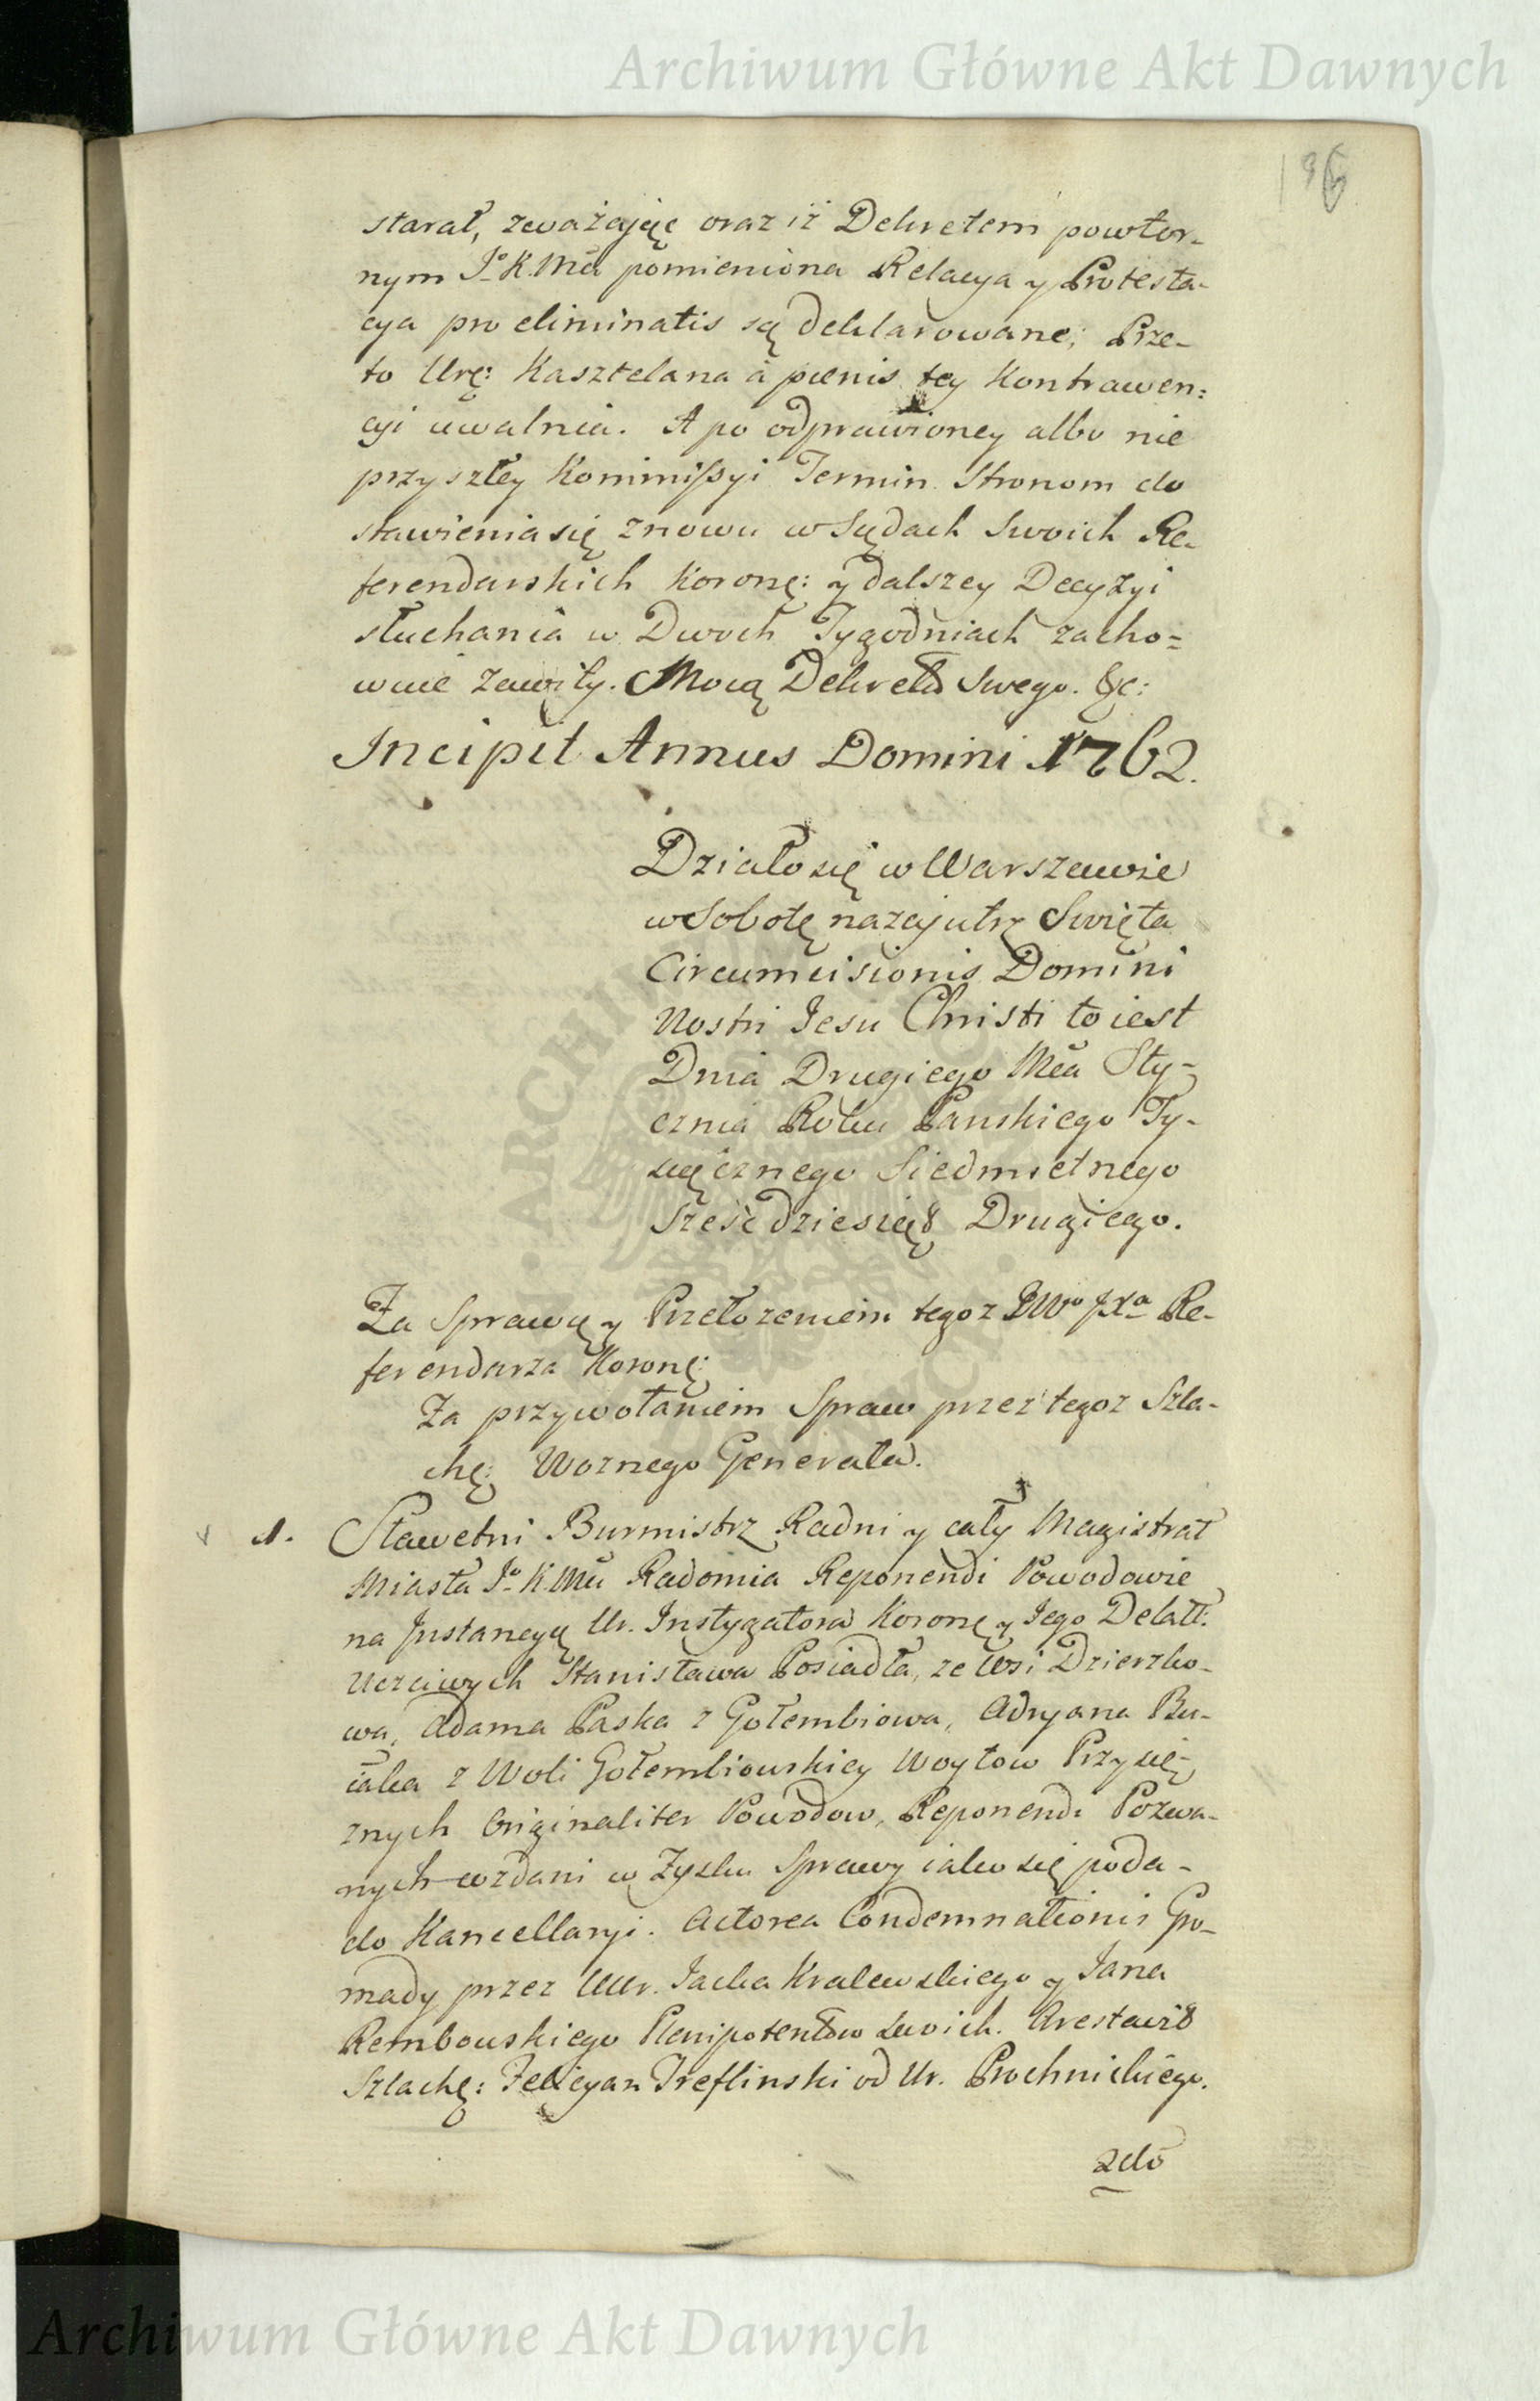 Archiwum Główne Akt Dawnych
starał, zważając oraz iż Dekretem powtor-
nym Jº K. Mci pomieniona Relacya y Protesta-
cya pro eliminatis są deklarowane; Prze-
to Urę: Kasztelana à paenis tey Kontrawen:
cyi uwalnia. A po odprawioney albo nie
przyszłey Kommissyi Termin Stronom do
stawienia się znowu w Sądach Swoich Re-
ferendarskich Koronę: y dalszey Decyzyi
słuchania w Dwoch Tygodniach zacho=
wuie zawity. Mocą Dekretu Swego. &c:
Incipit Annus Domini 1762.
Działo się w Warszawie
w Sobotę nazajutrz Swięta
Circumcisionis Domini
Nostri Jesu Christi to iest
Dnia Drugiego Mca Sty-
cznia Roku Panskiego Ty-
siącznego Siedmsetnego
Sześćdziesiąt Drugiego.
Za Sprawą y Przełożeniem tegoż JWº JXª Re-
ferendarza Koronę:
Za przywołaniem Spraw przez tegoż Szla-
chę: Woznego Generała.
1. Sławetni Burmistrz Radni y cały Magistrat
Miasta Jº K. Mci Radomia Reponendi Powodowie
na Instancyą Ur. Instygatora Koronę y Jego Delatt:
Uczciwych Stanisława Posiadła, ze Wsi Dzierzko-
wa, Adama Paska z Gołembiowa, Adryana Bu-
iaka z Woli Gołembiowskiey Woytow Przysię-
znych Originaliter Powodow, Reponendi Pozwa-
nych wzdani w Zysku Sprawy iako się poda-
do Kancellaryi. Actorea Condemnationis Gro-
mady przez UUr. Jacka Kralewskiego y Jana
Rembowskiego Plenipotentow swoich. Arestował
Szlachę: Felicyan Treflinski od Ur. Prochnickiego.
2do
Archiwum Główne Akt Dawnych